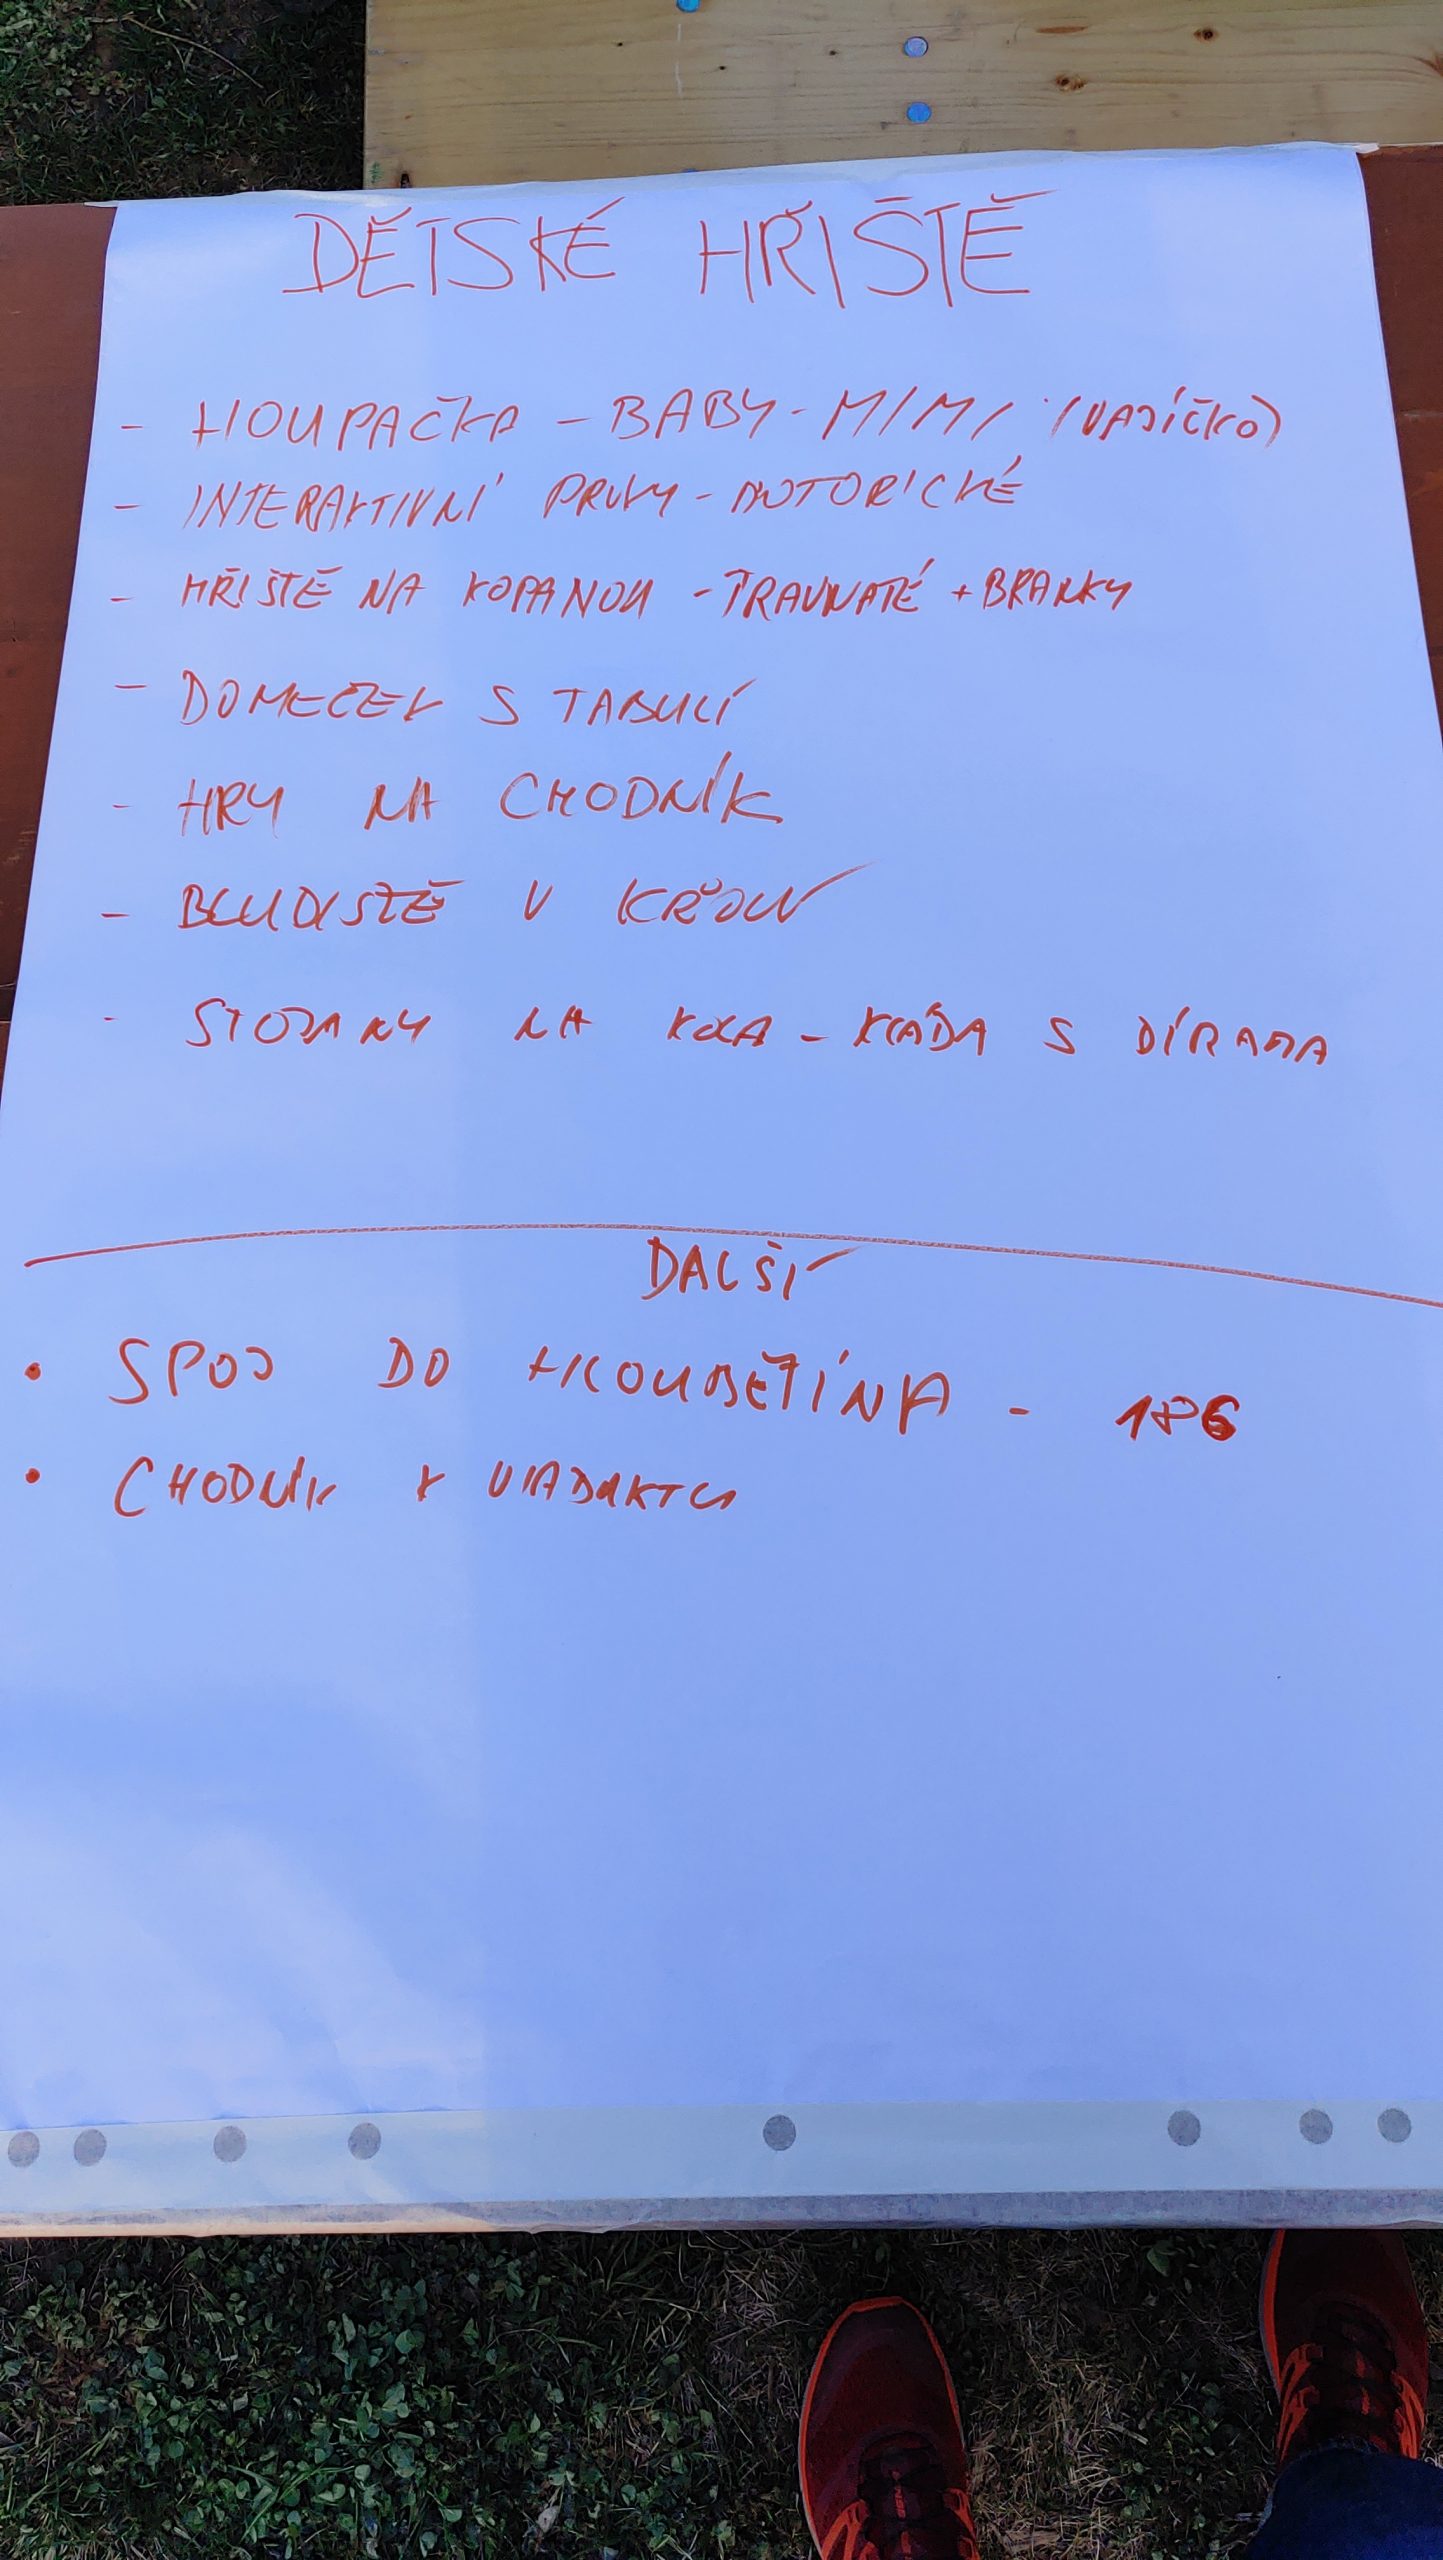 DĚTSKÉ HŘIŠTĚ
- HOUPAČKA - BABY - MIMI (VAJÍČKO)
- INTERAKTIVNÍ PRVKY - MOTORICKÉ
- HŘIŠTĚ NA KOPANOU - TRAVNATÉ + BRANKY
- DOMEČEK S TABULÍ
- HRY NA CHODNÍK
- BLUDIŠTĚ V KŘOVÍ
- STOJANY NA KOLA - KLÁDA S DÍRAMA
DALŠÍ
• SPOJ DO HLOUBĚTÍNA - 186
• CHODNÍK K VIADUKTU